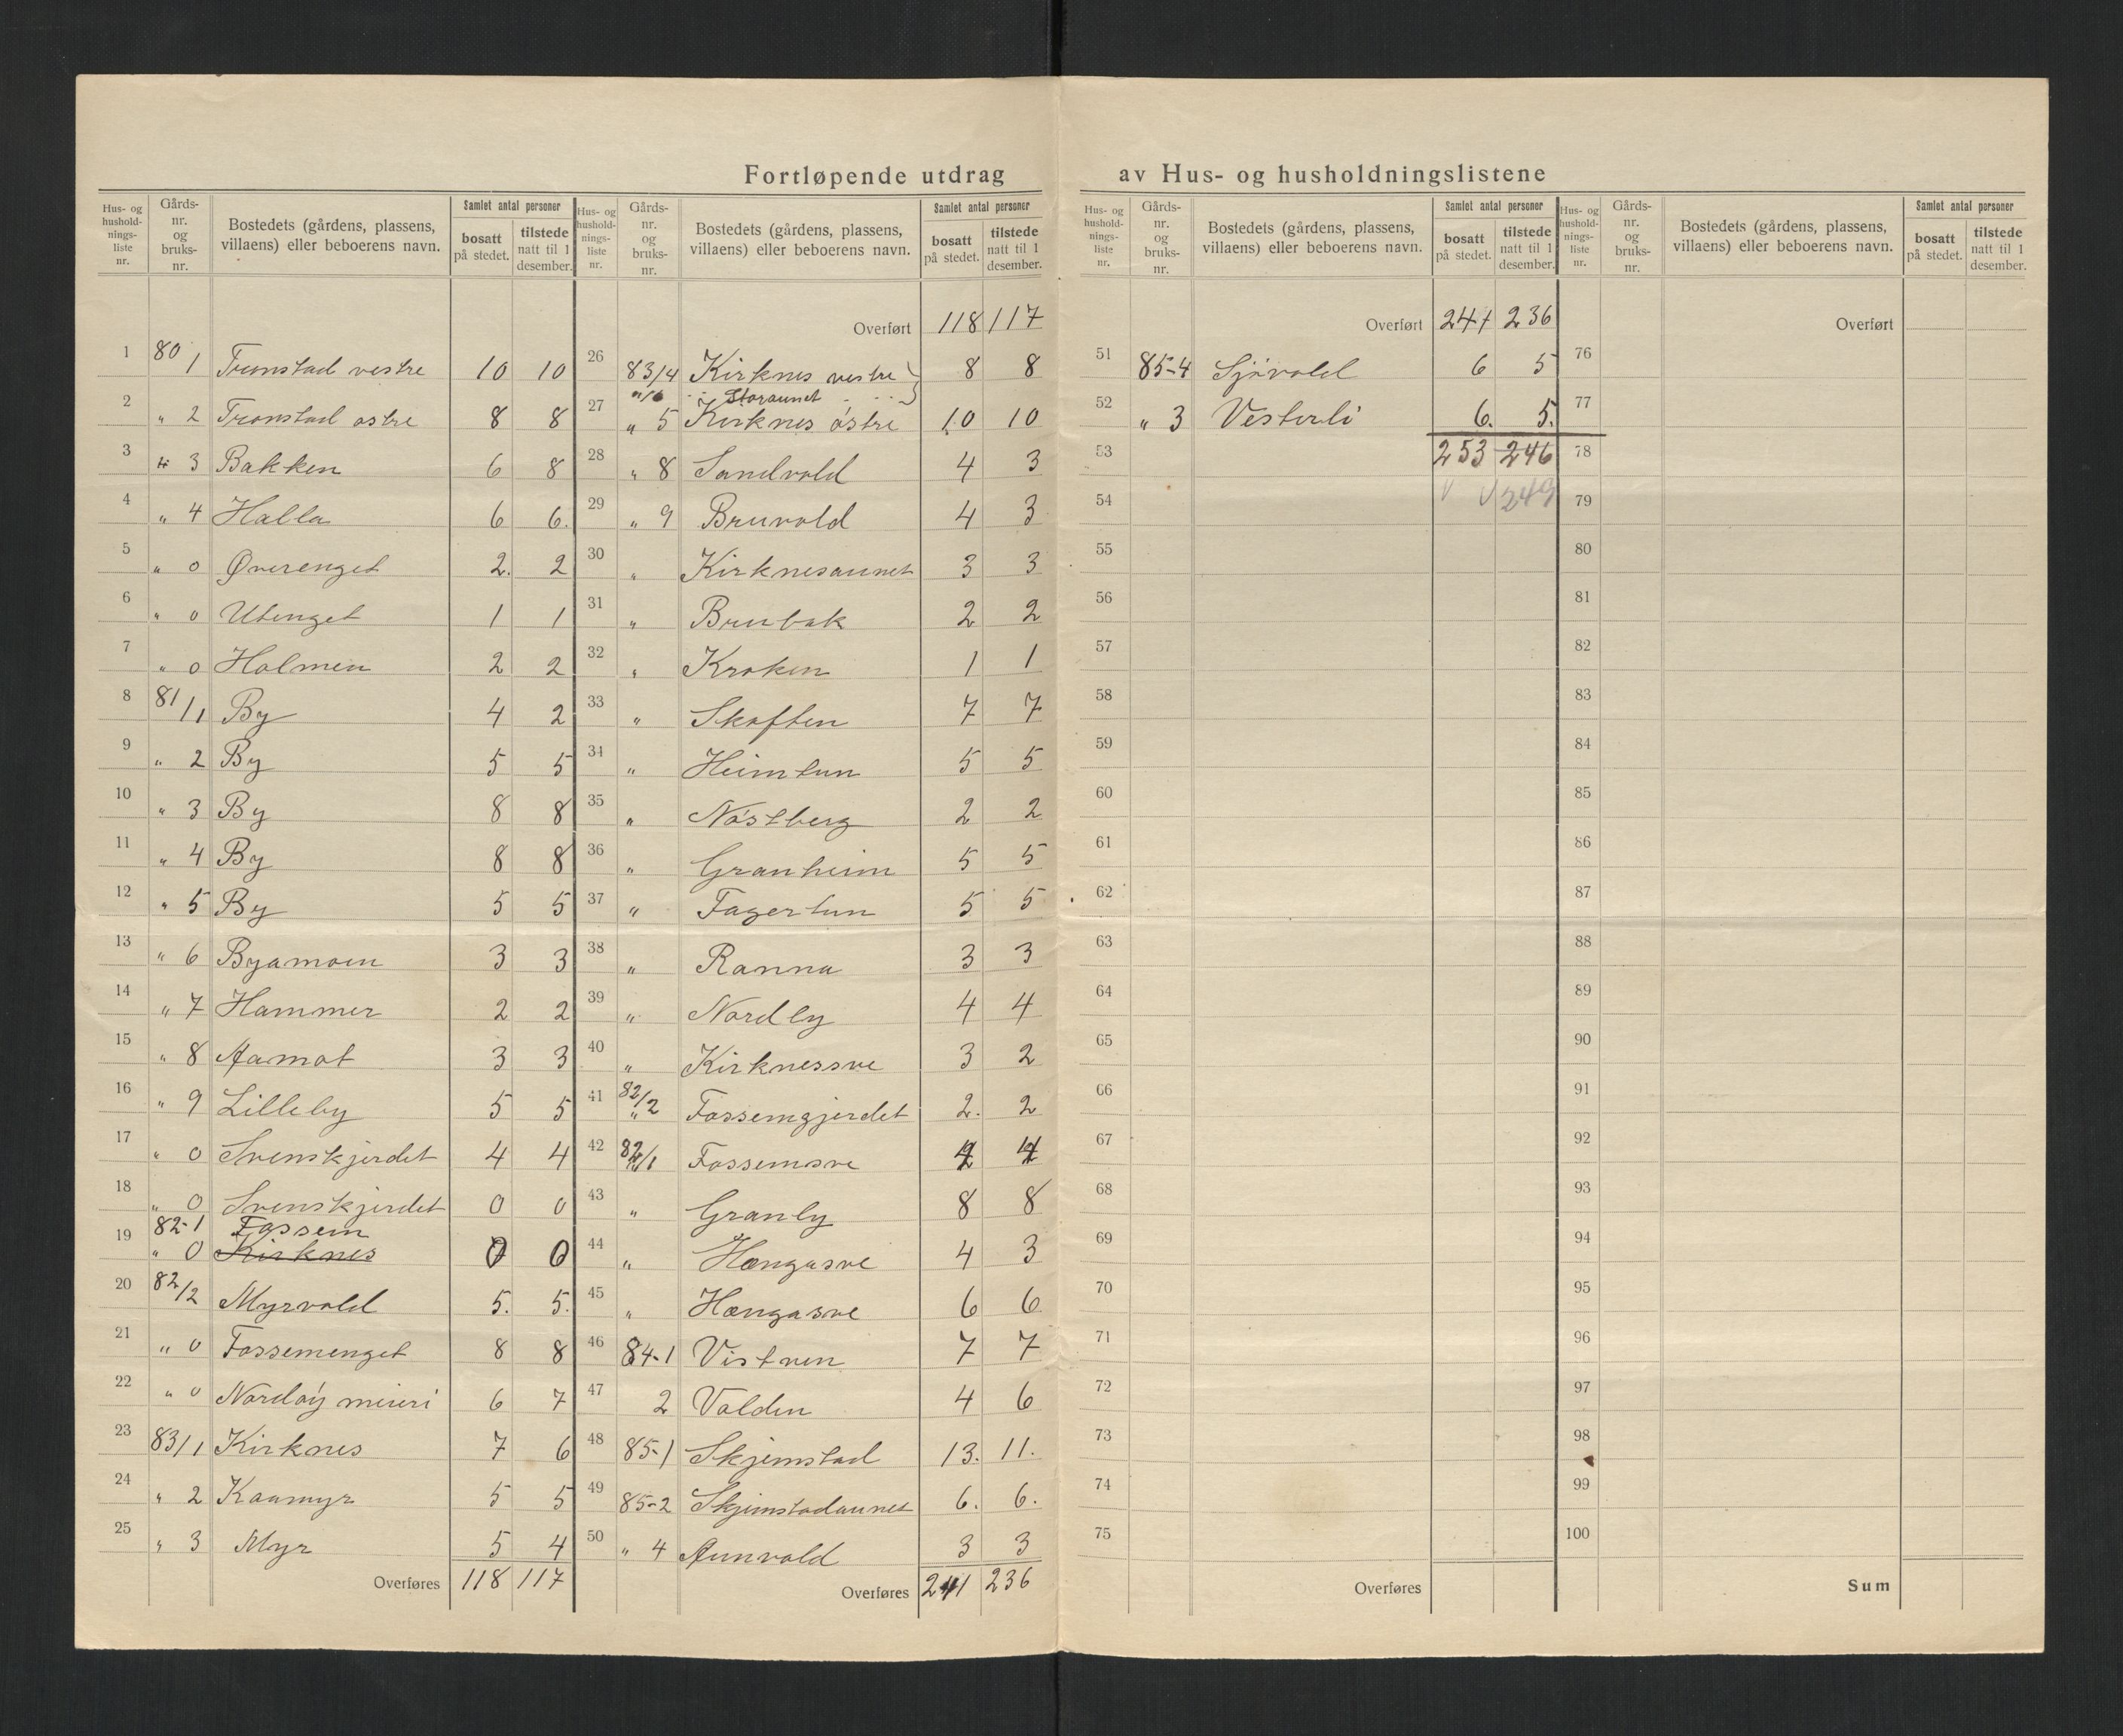 Fortløpende utdrag av Hus- og husholdningslistene
Hus- og hushold-nings-liste nr. | Gårds-nr. og bruks-nr. | Bostedets (gårdens, plassens, villaens) eller beboerens navn. | Samlet antal personer | bosatt på stedet. | tilstede natt til 1 desember.
1 80/1 Tronstad vestre 10 10
2 „ 2 Tronstad østre 8 8
3 „ 3 Bakken 6 8
4 „ 4 Halla 6 6.
5 „ 0 Øverenget 2. 2
6 „ 0 Utenget 1 1
7 „ 0 Holmen 2 2
8 81/1 By 4 2
9 „ 2 By 5 5
10 „ 3 By 8 8
11 „ 4 By 8 8
12 „ 5 By 5 5
13 „ 6 Byamoen 3 3
14 „ 7 Hammer 2 2
15 „ 8 Aamot 3 3
16 „ 9 Lilleby 5 5
17 „ 0 Svenskjerdet 4 4
18 „ 0 Svenskjerdet 0 0
82-1 Fossem
19 „ 0 Kirknes 0 0
20 82/2 Myrvold 5. 5.
21 „ 0 Fossemenget 8 8
22 „ 0 meieri 6 7
23 83/1 Kirknes 7 6
24 „ 2 Kaamyr 5 5
25 „ 3 Myr 5 4
Overføres 118 117
Hus- og hushold-nings-liste nr. | Gårds-nr. og bruks-nr. | Bostedets (gårdens, plassens, villaens) eller beboerens navn. | Samlet antal personer | bosatt på stedet. | tilstede natt til 1 desember.
Overført 118 117
26 83/4 Kirknes vestre 8 8
Storaunet
27 „ 5 Kirknes østre 10 10
28 „ 8 Sandvold 4 3
29 „ 9 Bruvold 4 3
30 „ Kirknesaunet 3 3
31 „ Brubak 2 2
32 „ Kroken 1 1
33 „ Skaften 7 7
34 „ Heimtun 5 5
35 „ Nøstberg 2 2
36 „ Granheim 5 5
37 „ Fagertun 5 5
38 „ Ranna 3 3
39 „ Nordby 4 4
40 „ Kirknessve 3 2
41 82/2 „ Fossemgjerdet 2. 2
42 82/1 Fossemsve 4 4
43 „ Granly 8 8
44 „ Hongasve 4 3
45 „ Hongasve 6 6
46 84-1 Vistven 7 7
47 2 Valden 4 6
48 85-1 Skjemstad 13. 11.
49 85-2 Skjemstadaunet 6. 6.
50 „ 4 Aunvold 3 3
Overføres 241 236
Hus- og hushold-nings-liste nr. | Gårds-nr. og bruks-nr. | Bostedets (gårdens, plassens, villaens) eller beboerens navn. | Samlet antal personer | bosatt på stedet. | tilstede natt til 1 desember.
Overført 241 236
51 85-4 Sjøvold 6 5
52 „ 3 Vesterli 6. 5.
53 253 246
54 249
55
56
57
58
59
60
61
62
63
64
65
66
67
68
69
70
71
72
73
74
75
Overføres
Hus- og hushold-nings-liste nr. | Gårds-nr. og bruks-nr. | Bostedets (gårdens, plassens, villaens) eller beboerens navn. | Samlet antal personer | bosatt på stedet. | tilstede natt til 1 desember.
Overført
76
77
78
79
80
81
82
83
84
85
86
87
88
89
90
91
92
93
94
95
96
97
98
99
100
Sum